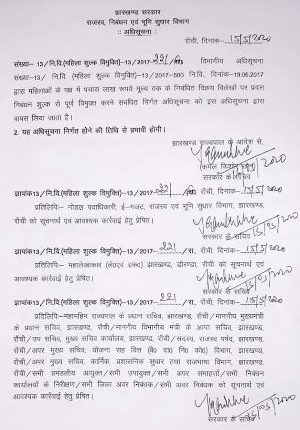 झारखण्ड सरकार
राजस्व, निबंधन एवं भूमि सुधार विभाग
:: अधिसूचना ::
राँची, दिनांक- 15/5/2020
संख्या- 13/ नि.वि.(महिला शुल्क विमुक्ति)-13/2017- 221/ विभागीय अधिसूचना
संख्या-13/नि.वि. (महिला शुल्क विमुक्ति)-13/2017-593 नि., दिनांक-19.06.2017
द्वारा महिलाओं के पक्ष में पचास लाख रूपये मूल्य तक के निबंधित विक्रय विलेखों पर प्रदत्त
निबंधन शुल्क से पूर्ण विमुक्त करने संबंधित निर्गत अधिसूचना को इस अधिसूचना द्वारा
वापस लिया जाता है।
2. यह अधिसूचना निर्गत होने की तिथि से प्रभावी होगी।
झारखण्ड राज्यपाल के आदेश से,
15/5/2020
सरकार के सचिव
ज्ञापांक13/नि.वि. (महिला शुल्क विमुक्ति)-13/2017- 221/ रा. राँची, दिनांक- 15/5/2020
प्रतिलिपि- नोडल पदाधिकारी, ई-गजट, राजस्व एवं भूमि सुधार विभाग, झारखण्ड,
राँची को सूचनार्थ एवं आवश्यक कार्रवाई हेतु प्रेषित।
सरकार के सचिव
ज्ञापांक13/नि.वि. (महिला शुल्क विमुक्ति)-13/2017- 221 /रा. राँची, दिनांक- 15/5/2020
प्रतिलिपि- महालेखाकार (ले0एवं हक0) झारखण्ड, डोरण्डा, राँची को सूचनार्थ एवं
आवश्यक कार्रवाई हेतु प्रेषित।
सरकार के सचिव
ज्ञापांक13/नि.वि. (महिला शुल्क विमुक्ति)-13/2017- 221 /रा. राँची, दिनांक- 15/5/2020
प्रतिलिपि-महामहिम राज्यपाल के प्रधान सचिव, झारखण्ड, राँची/माननीय मुख्यमंत्री
के प्रधान सचिव, झारखण्ड, राँची/माननीय विभागीय मंत्री के आप्त सचिव, झारखण्ड,
राँची/उप सचिव, मुख्य सचिव कार्यालय, झारखण्ड, राँची/सदस्य, राजस्व पर्षद, झारखण्ड,
राँची/अपर मुख्य सचिव, योजना सह वित्त विभाग, झारखण्ड,
राँची/अपर मुख्य सचिव, कार्मिक प्रशासनिक सुधार तथा राजभाषा विभाग, झारखण्ड,
राँची/सभी प्रमंडलीय आयुक्त/सभी उपायुक्त/सभी अपर समाहर्ता/सभी निबंधन
कार्यालयों के निरीक्षण/सभी जिला अवर निबंधक/सभी अवर निबंधक को सूचनार्थ एवं
आवश्यक कार्रवाई हेतु प्रेषित।
सरकार के सचिव